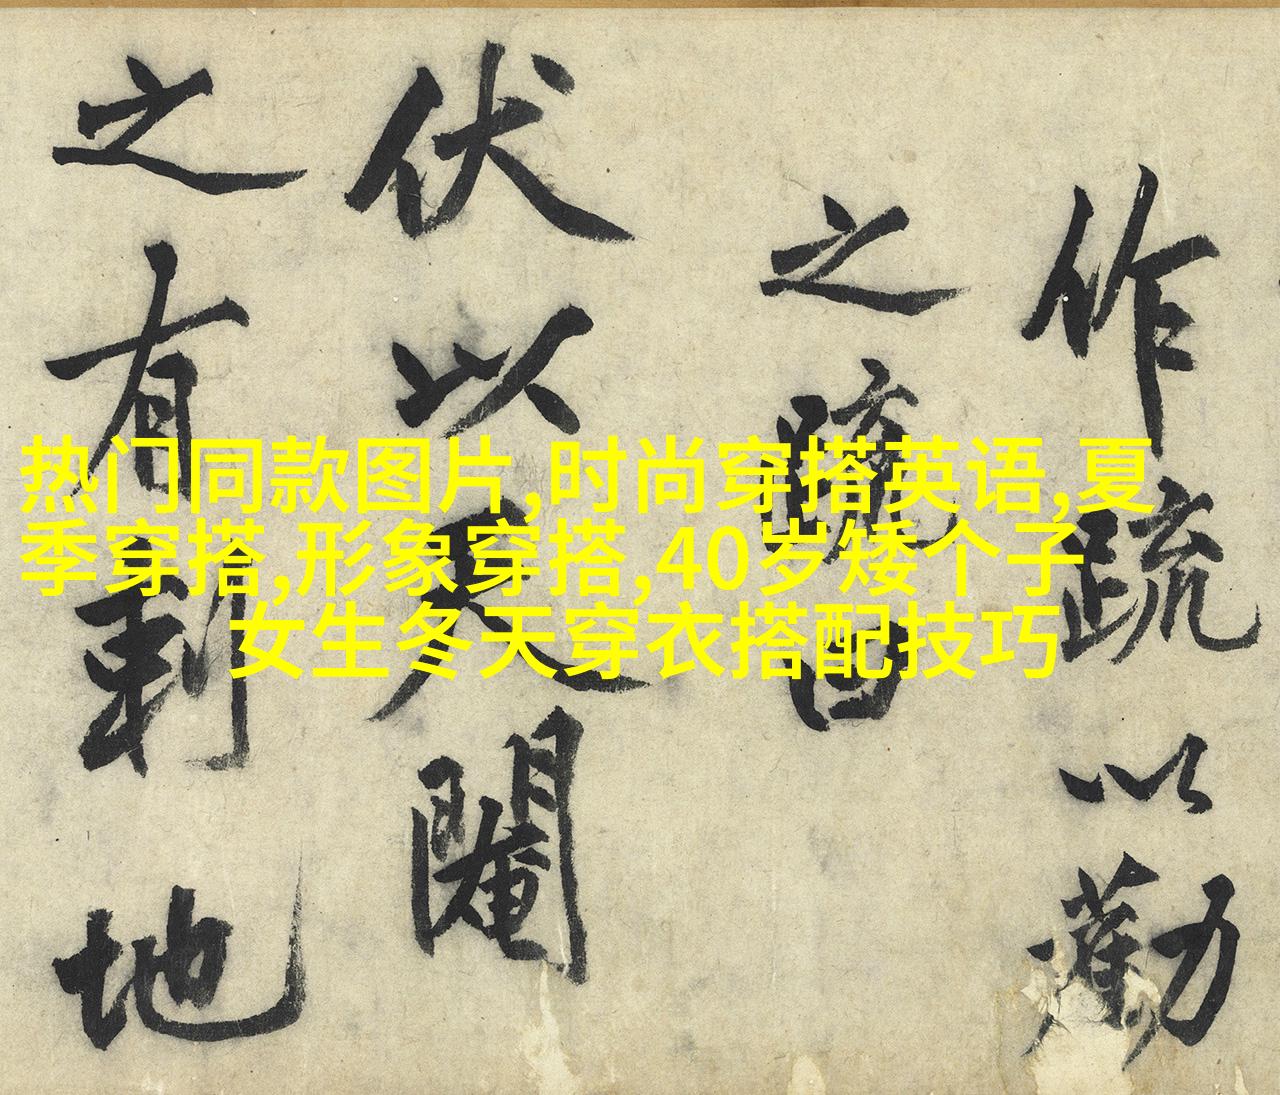 作疏以勸
之疏曰
伏以天閹
之有刺地
热门同款图片,时尚穿搭英语,夏
季穿搭,形象穿搭,40岁矮个子
女生冬天穿衣搭配技巧